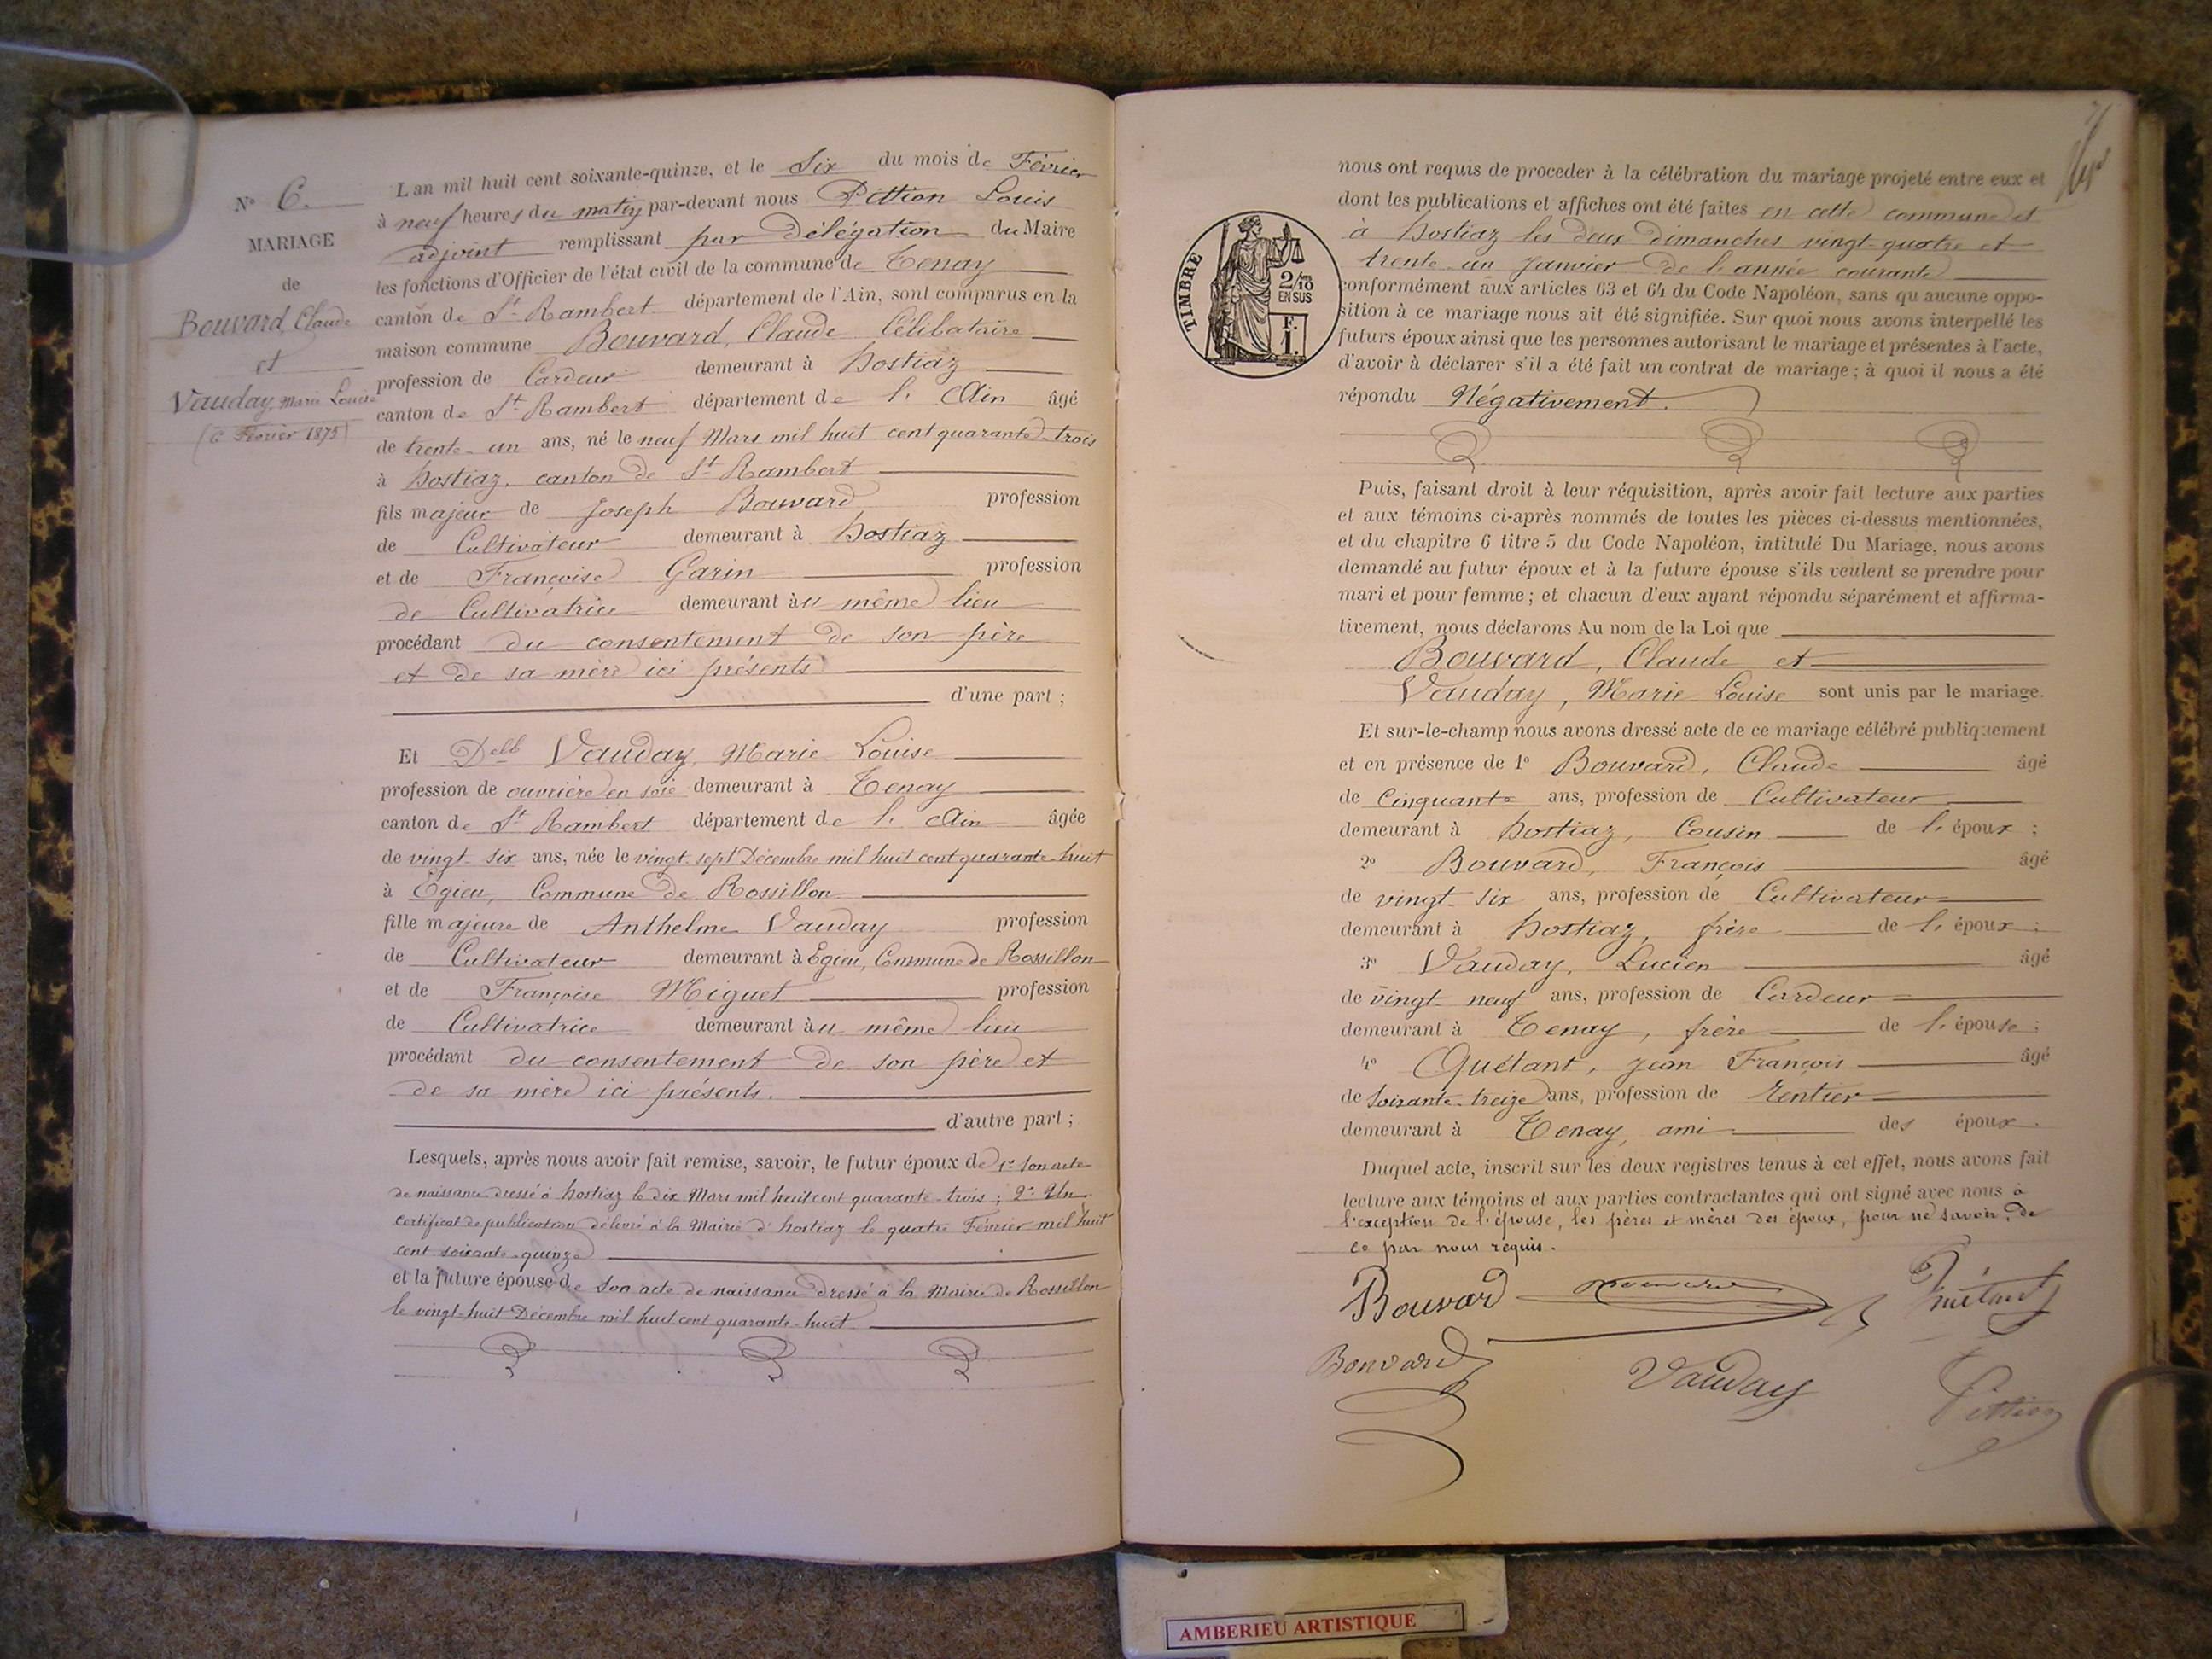 N° 6.
MARIAGE
de
Bouvard, Claude
et
Vauday, Marie Louise
(6 Février 1875)
L'an mil huit cent soixante-quinze, et le Six du mois de Février
à neuf heures du matin par-devant nous Pittion Louis
adjoint remplissant par Délégation du Maire
les fonctions d'Officier de l'état civil de la commune de Tenay
canton de St Rambert département de l'Ain, sont comparus en la
maison commune Bouvard, Claude Célibataire
profession de Cardeur demeurant à hostiaz
canton de St Rambert département de l'Ain âgé
de trente-un ans, né le neuf Mars mil huit cent quarante-trois
à hostiaz, canton de St Rambert
fils majeur de Joseph Bouvard profession
de Cultivateur demeurant à hostiaz
et de Françoise Garin profession
de Cultivatrice demeurant àu même lieu
procédant du consentement de son père
et de sa mère ici présents
d'une part ;
Et Delle Vauday, Marie Louise
profession de ouvrière en soie demeurant à Tenay
canton de St Rambert département de l'Ain âgée
de vingt-six ans, née le vingt-sept Décembre mil huit cent quarante-huit
à Egieu, Commune de Rossillon
fille majeure de Anthelme Vauday profession
de Cultivateur demeurant à Egieu, Commune de Rossillon
et de Françoise Miguet profession
de Cultivatrice demeurant àu même lieu
procédant du consentement de son père et
de sa mère ici présents.
d'autre part ;
Lesquels, après nous avoir fait remise, savoir, le futur époux de 1° son acte
de naissance dressé à hostiaz le dix Mars mil huit cent quarante-trois ; 2° Un
certificat de publication délivré à la Mairie d'hostiaz le quatre Février mil huit
cent soixante-quinze
et la future épouse de son acte de naissance dressé à la Mairie de Rossillon
le vingt-huit Décembre mil huit cent quarante-huit
7
nous ont requis de proceder à la célébration du mariage projeté entre eux et
dont les publications et affiches ont été faites en cette commune et
à hostiaz les deux dimanches vingt-quatre et
trente-un Janvier de l'année courante
conformément aux articles 63 et 64 du Code Napoléon, sans qu'aucune oppo-
sition à ce mariage nous ait été signifiée. Sur quoi nous avons interpellé les
futurs époux ainsi que les personnes autorisant le mariage et présentes à l'acte,
d'avoir à déclarer s'il a été fait un contrat de mariage ; à quoi il nous a été
répondu Négativement.
TIMBRE
2/10
EN SUS
F.
1.
Puis, faisant droit à leur réquisition, après avoir fait lecture aux parties
et aux témoins ci-après nommés de toutes les pièces ci-dessus mentionnées,
et du chapitre 6 titre 5 du Code Napoléon, intitulé Du Mariage, nous avons
demandé au futur époux et à la future épouse s'ils veulent se prendre pour
mari et pour femme ; et chacun d'eux ayant répondu séparément et affirma-
tivement, nous déclarons Au nom de la Loi que
Bouvard, Claude et
Vauday, Marie Louise sont unis par le mariage.
Et sur-le-champ nous avons dressé acte de ce mariage célébré publiquement
et en présence de 1° Bouvard, Claude âgé
de Cinquante ans, profession de Cultivateur
demeurant à hostiaz, Cousin de l'époux ;
2° Bouvard, François âgé
de vingt-six ans, profession de Cultivateur
demeurant à hostiaz, frère de l'époux ;
3° Vauday, Lucien âgé
de vingt-neuf ans, profession de Cardeur
demeurant à Tenay, frère de l'épouse ;
4° Quétant, Jean François âgé
de soixante-treize ans, profession de Rentier
demeurant à Tenay, ami des époux.
Duquel acte, inscrit sur les deux registres tenus à cet effet, nous avons fait
lecture aux témoins et aux parties contractantes qui ont signé avec nous à
l'exception de l'épouse, les pères et mères des époux, pour ne savoir, de
ce par nous requis.
Bouvard Quétant
Bouvard Vauday Pittion
AMBERIEU ARTISTIQUE